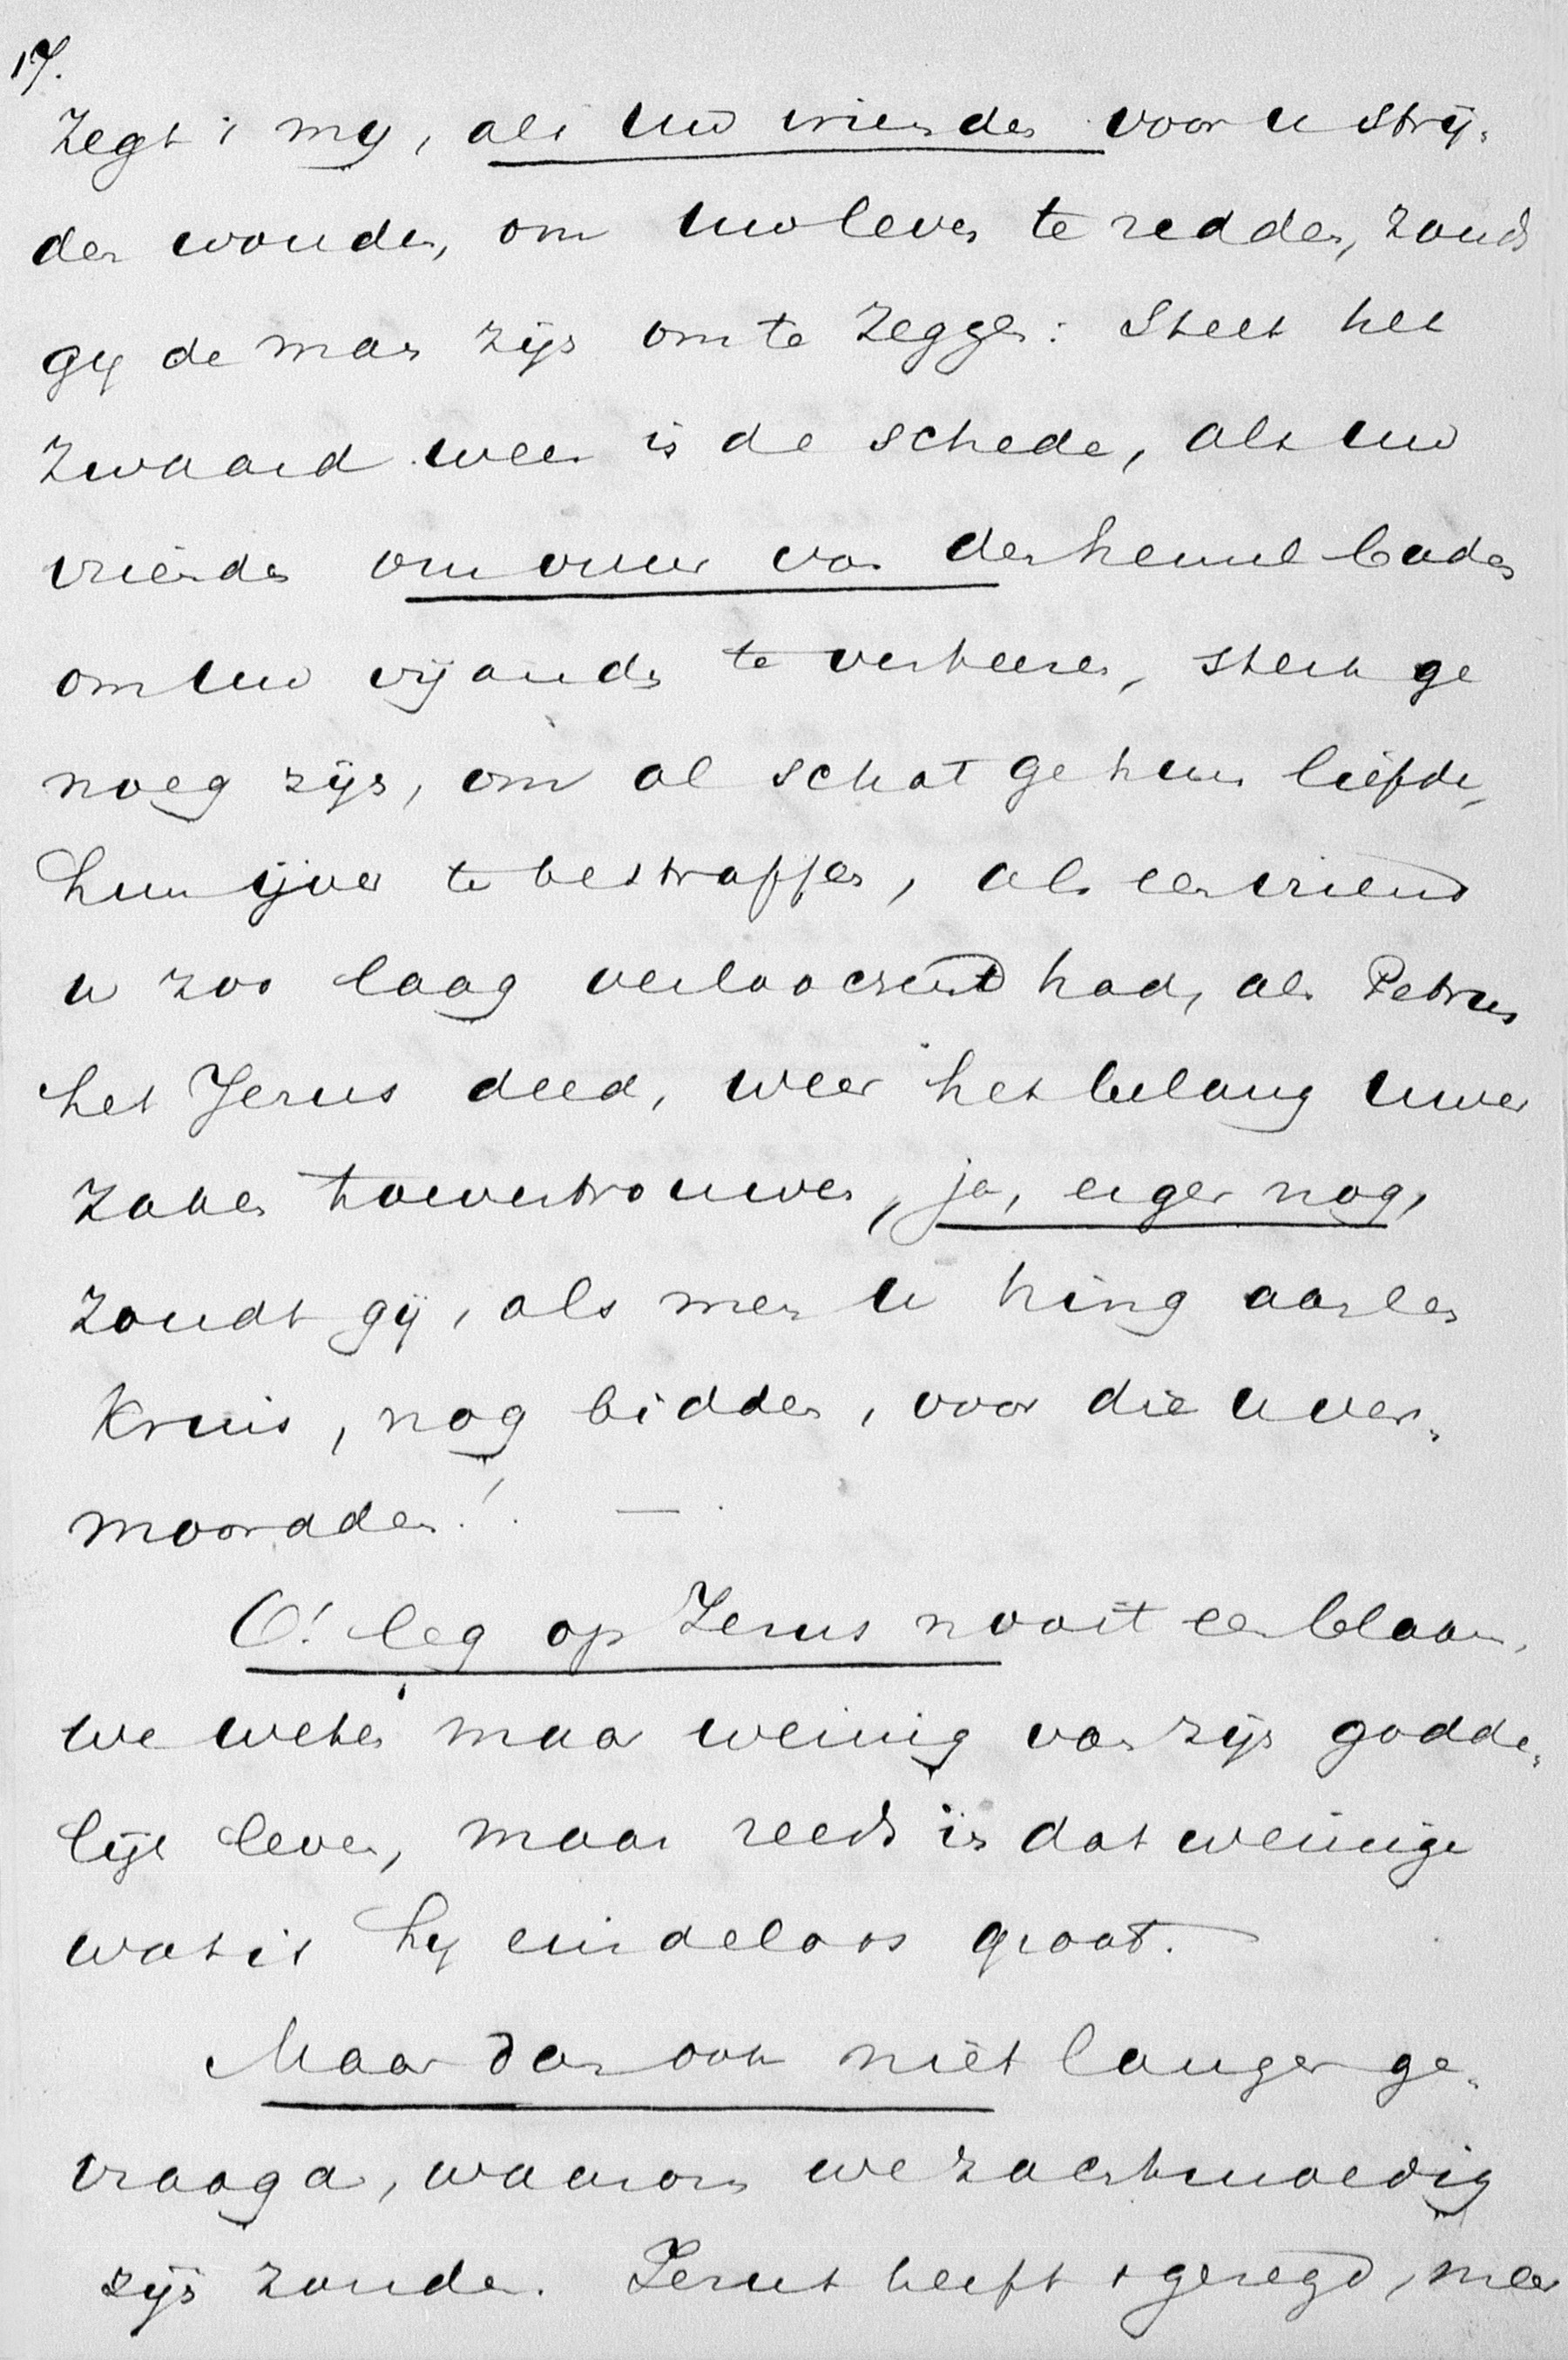 17.
Zegt 't my, als uw vrienden voor u strij-
den wouden, om uw leven te redden, zoudt
gy de man zijn om te zeggen: Steek het
zwaard weer in de schede, als uw
vrienden om vuur van den hemel baden
om uw vijanden te verteeren, sterk ge
noeg zijn, om al schat ge hun liefde,
hun ijver te bestraffen, als een vriend
u zoo laag verloochend had, als Petrus
het Jezus deed, weer het belang uwer
zaken toevertrouwen, ja, erger nog,
zoudt gij, als men u hing aan een
Kruis, nog bidden, voor die u ver-
moordden! —
O! leg op Jezus nooit een blaam,
we weten maar weinig van zijn godde-
lijk leven, maar reeds in dat weinige
wat is hy eindeloos groot. —
Maar dan ook niet langer ge-
vraagd, waarom we zachtmoedig
zijn zouden. Jezus heeft 't gezegd, meer